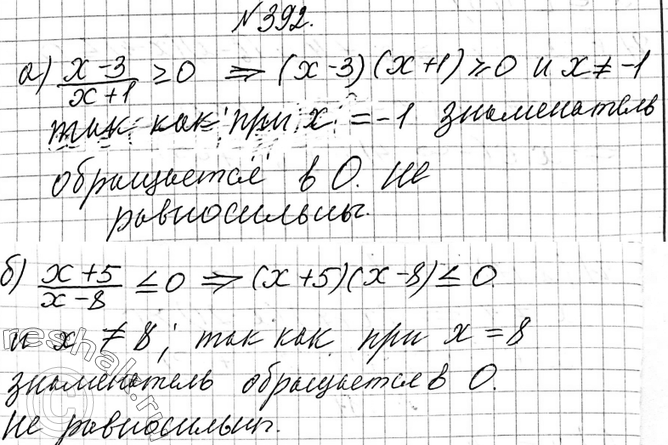 №392.
а) (x-3)/(x+1) ≥ 0 ⇒ (x-3)(x+1) ≥ 0 и x ≠ -1
так как при x = -1 знаменатель
обращается в 0. Не
равносильны.
б) (x+5)/(x-8) ≤ 0 ⇒ (x+5)(x-8) ≤ 0.
и x ≠ 8; так как при x = 8
знаменатель обращается в 0.
Не равносильны.
reshak.ru